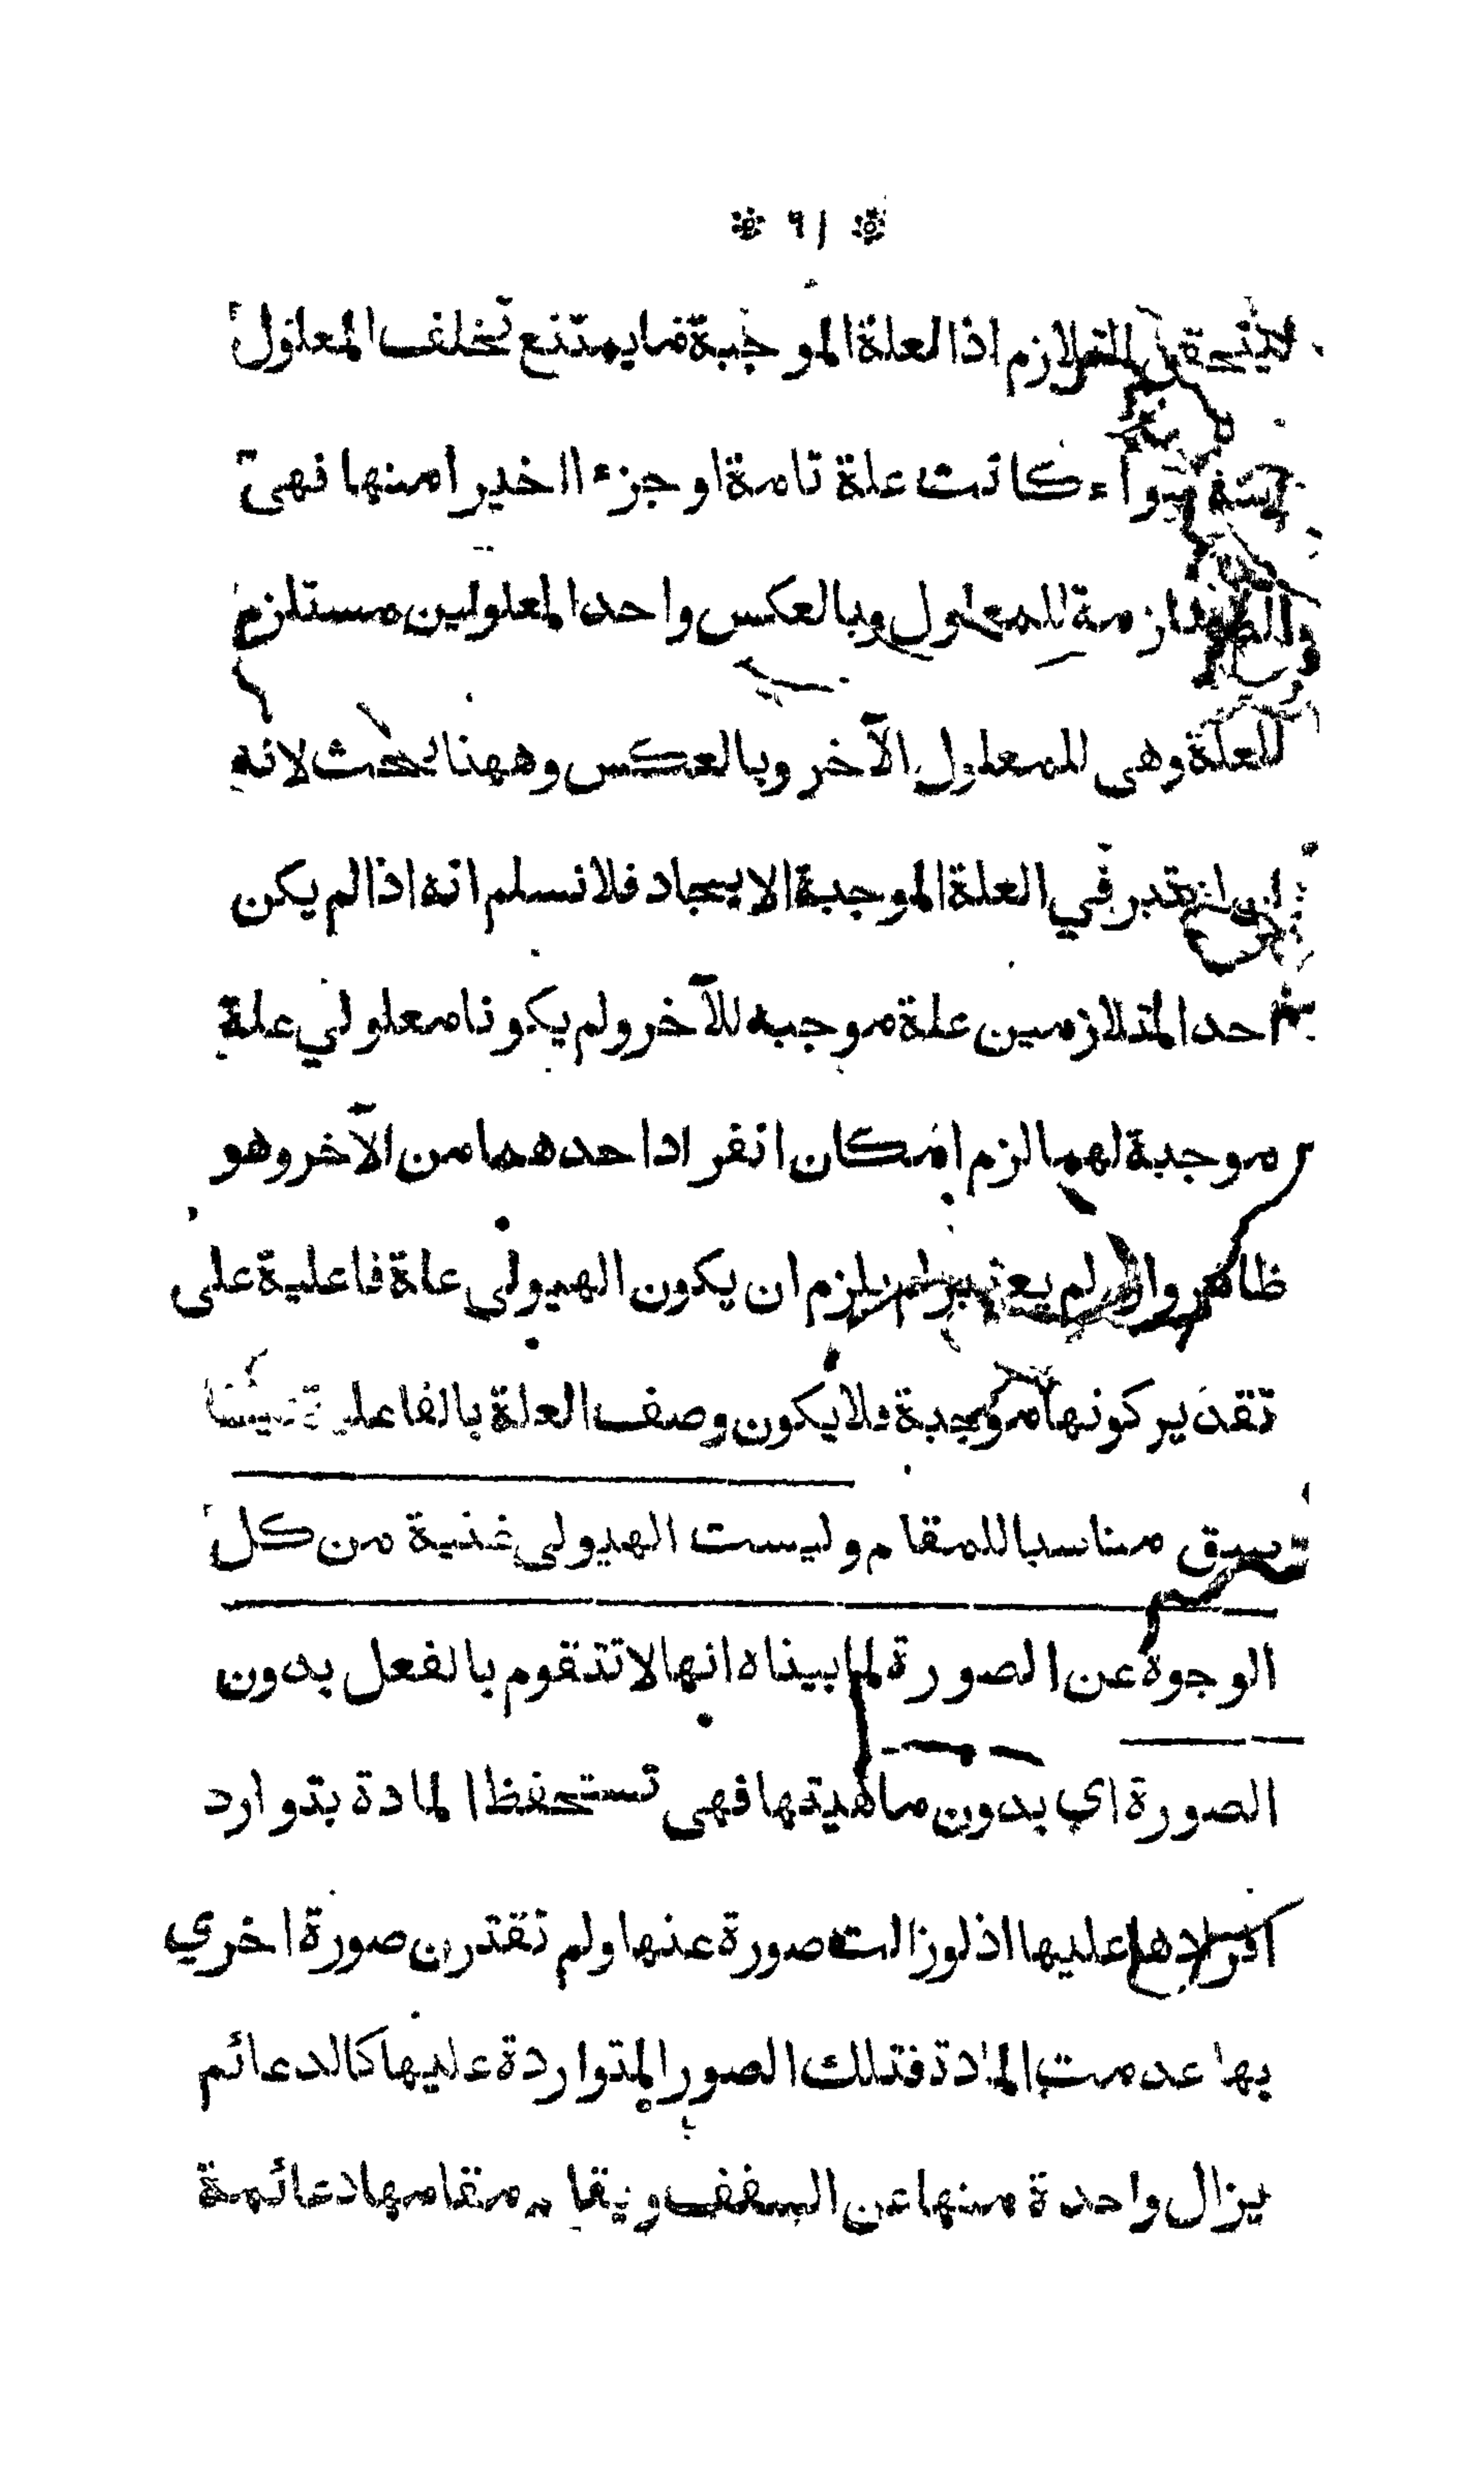 * ٩١ *
لا يتحقق التلازم اذ العلة الموجبة ما يمتنع تخلف المعلول
سواء كانت علة تامة او جزءا اخيرا منها فهى
ملازمة للمعلول وبالعكس واحد المعلولين مستلزم
للعلة وهى للمعلول الآخر وبالعكس وههنا بحث لانه
ان اعتبر في العلة الموجبة الايجاد فلا نسلم انه اذا لم يكن
احد المتلازمين علة موجبه للآخر ولم يكونا معلولي علة
موجبة لهما لزم امكان انفراد احدهما من الآخر وهو
ظاهر وان لم يعتبر لم يلزم ان يكون الهيولى علة فاعلية على
تقدير كونها موجبة فلا يكون وصف العلة بالفاعلية
سبق مناسبا للمقام وليست الهيولى غنية من كل
الوجوة عن الصورة لما بيناه انها لا تتقوم بالفعل بدون
الصورة اي بدون ماهيتها فهى تستحفظ المادة بتوارد
افرادها عليها اذ لو زالت صورة عنها ولم تقترن صورة اخري
بها عدمت المادة فتلك الصور المتواردة عليها كالدعائم
يزال واحدة منها عن السقف ويقام مقامها دعائمة